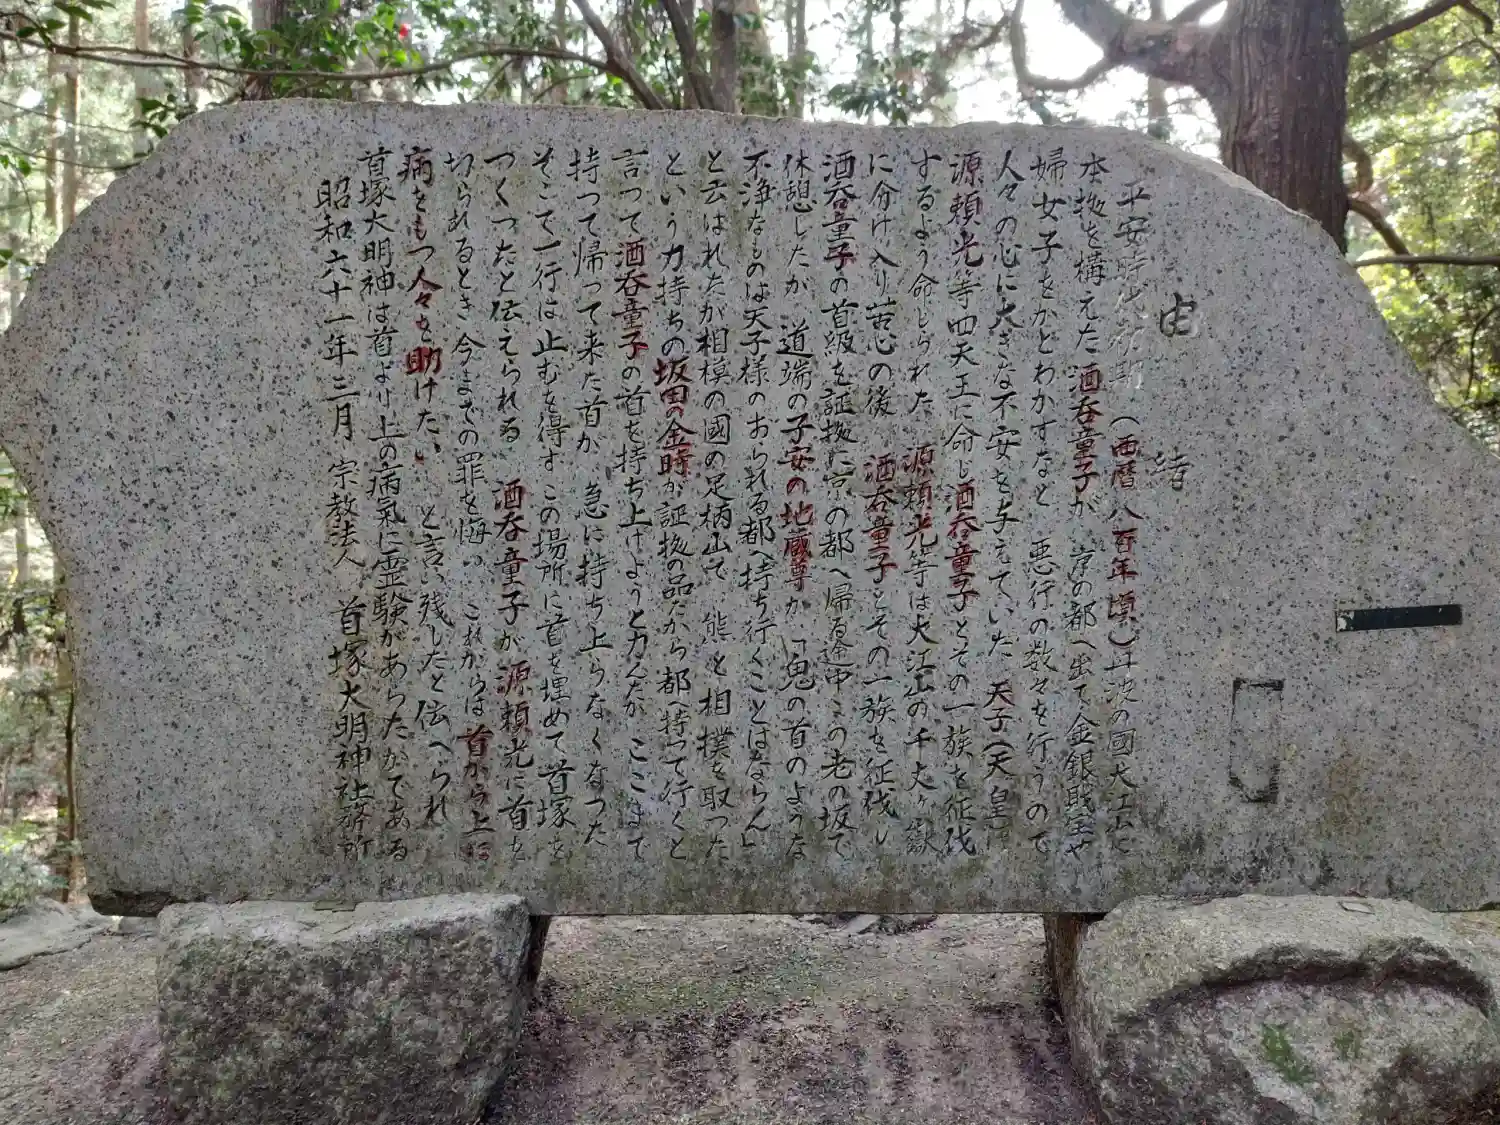 由緒
平安時代初期(西暦八百年頃)丹波の國大江山に
本拠を構えた酒呑童子が 京の都へ出て金銀財宝や
婦女子をかどわかすなど 悪行の数々を行うので
人々の心に大きな不安を与えていた 天子(天皇)
源頼光等四天王に命じ酒呑童子とその一族を征伐
するよう命じられた 源頼光等は大江山の千丈ヶ嶽
に分け入り苦心の後 酒呑童子とその一族を征伐し
酒呑童子の首級を証拠に京の都へ帰る途中この老の坂で
休憩したが 道端の子安の地蔵尊が「鬼の首のような
不浄なものは天子様のおられる都へ持ち行くことはならん」
と云はれたが相模の國の足柄山で 熊と相撲を取った
という力持ちの坂田の金時が証拠の品だから都へ持つて行くと
言つて酒呑童子の首を持ち上げようと力んだが ここまで
持つて帰つて来た首が 急に持ち上らなくなつた
そこで一行は止むを得ずこの場所に首を埋めて首塚を
つくつたと伝えられる 酒呑童子が源頼光に首を
切られるとき今までの罪を悔い これからは首から上に
病をもつ人々を助けたい と言い残したと伝へられ
首塚大明神は首より上の病氣に霊験があらたかである
昭和六十一年三月 宗教法人 首塚大明神社務所